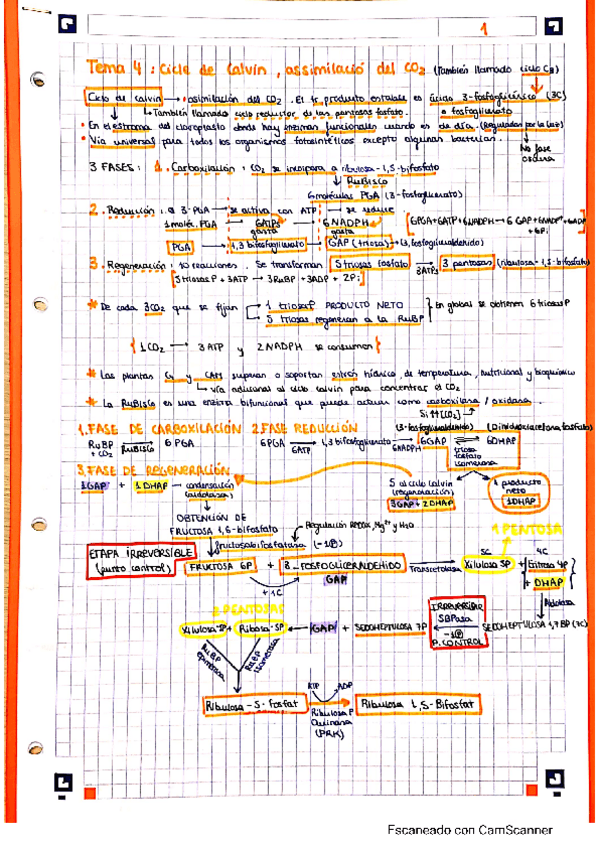 1
Tema 4: Cicle de Calvin, assimilació del CO2 (También llamado ciclo C3)
Ciclo de calvin → asimilación del CO2. El 1r producto estable es ácido 3-fosfoglicérico (3C)
↳ También llamado ciclo reductor de las pentosas fosfato. o fosfoglicerato
• En el estroma del cloroplasto donde hay enzimas funcionales cuando es de día. (Reguladas por la luz)
• Vía universal para todos los organismos fotosintéticos excepto algunas bacterias.
No fase oscura
3 FASES: 1. Carboxilación: CO2 se incorpora a ribulosa-1,5-bifosfato
↓ RuBisCo
6 moléculas PGA (3-fosfoglicerato)
2. Reducción: a 3-PGA → se activa con ATP → se reduce
1 moléc. PGA → 6ATPs gasta → 6NADPH gasta [6PGA+6ATP+6NADPH → 6 GAP+6NADP+6ADP +6Pi]
PGA → 1,3 bifosfoglicerato → GAP (triosa)
3. Regeneración: 10 reacciones. Se transforman 5 triosas fosfato → 3ATPs 3 pentosas (ribulosa-1,5-bifosfato)
[5triosas P + 3ATP → 3RuBP + 3ADP + 2Pi]
* De cada 3CO2 que se fijan 1 triosa P PRODUCTO NETO
5 triosas regeneran a la RuBP } En global se obtienen 6 triosas P
{ 1CO2 → 3ATP y 2NADPH se consumen }
* Las plantas C4 y CAM superan o soportan estrés hídrico, de temperatura, nutricional y bioquímico
↳ vía adicional al ciclo calvin para concentrar el CO2
* La RuBisCo es una enzima bifuncional que puede actuar como carboxilasa / oxidasa.
Si ↑↑[CO2]
1. FASE DE CARBOXILACIÓN 2 FASE REDUCCIÓN (3-fosfogliceraldehido) (Dihidroxiacetona fosfato)
RuBP + CO2 → RuBisCo 6 PGA 6PGA → 6ATP 1,3 bifosfoglicerato → 6NADPH 6GAP ⇌ triosa fosfato isomerasa 6DHAP
3. FASE DE REGENERACIÓN
1GAP + 1DHAP → condensación (aldolasa)
5 al ciclo calvin (regeneración) 3GAP + 2DHAP
1 producto neto 1DHAP
OBTENCIÓN DE FRUCTOSA 1,6-bifosfato
Regulación REDOX, Mg2+ y H2O
fructosa bifosfatasa (-1P)
1 PENTOSA
ETAPA IRREVERSIBLE (punto control)
FRUCTOSA 6P + 3-FOSFOGLICERALDEHIDO GAP → Transcetolasa 5C Xilulosa 5P + 4C Eritrosa 4P
+ 1C
+ DHAP
Aldolasa
2 PENTOSAS
Xilulosa-P + Ribosa-5P ← GAP + SEDOHEPTULOSA 7P ← SEDOHEPTULOSA 1,7BP (7C)
IRREVERSIBLE SBPasa -1P P. CONTROL
RuBP epimerasa
RuBP isomerasa
Ribulosa-5-fosfat → ATP ADP → Ribulosa 1,5-Bifosfat
Ribulosa P Quinasa (PRK)
Escaneado con CamScanner